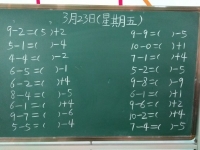 3月23日(星期五)
9-2=(5)+2
5-1=( )-4
4-4=( )-2
6-5=( )-1
6-2=( )+4
8-4=( )-5
6-1=( )+4
9-7=( )-6
5-5=( )-4
9-9=( )-5
10-0=( )+1
7-1=( )+4
5-2=( )-5
8-2=( )-9
6-1=( )+1
9-6=( )+2
10-2=( )+4
7-4=( )-5